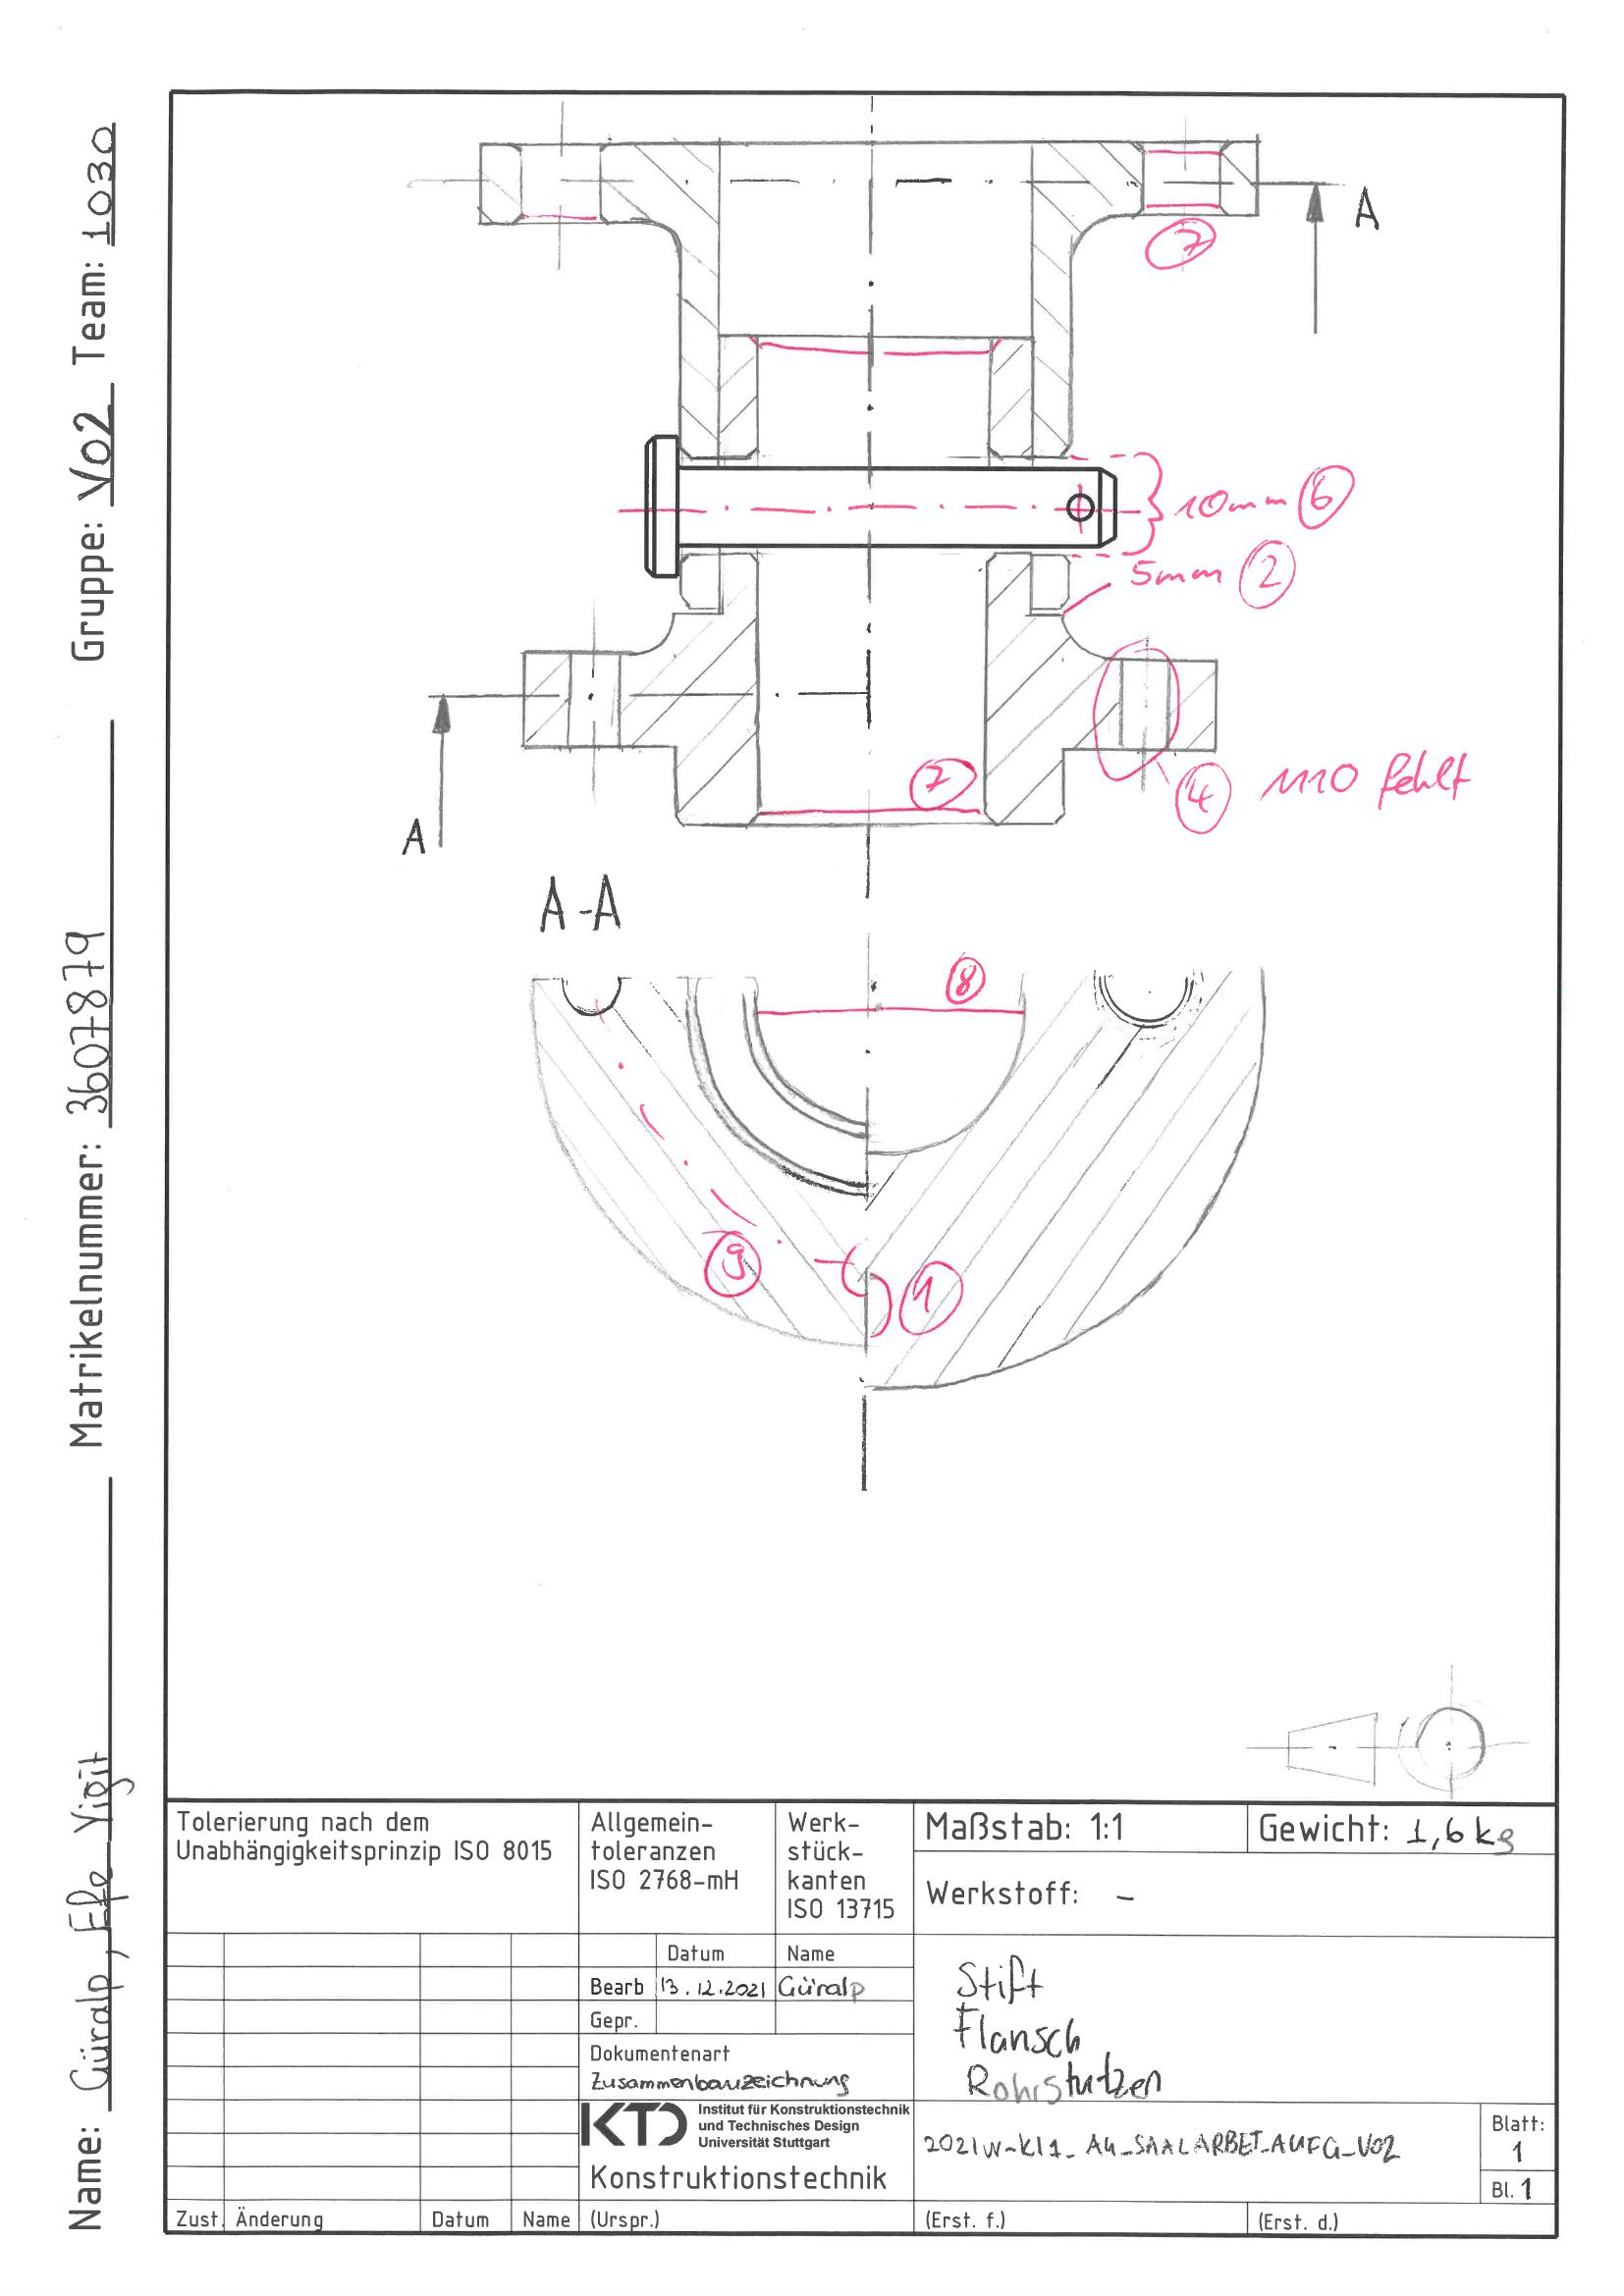 Name: Güralp, Efe Yigit Matrikelnummer: 3607879 Gruppe: V02 Team: 1030
A
7
10mm 6
5mm 2
7
4 M10 fehlt
A
A-A
8
9
1
Tolerierung nach dem
Unabhängigkeitsprinzip ISO 8015
Allgemein-
toleranzen
ISO 2768-mH
Werk-
stück-
kanten
ISO 13715
Maßstab: 1:1
Gewicht: 1,6 kg
Werkstoff: -
Datum Name
Bearb 13.12.2021 Güralp
Gepr.
Dokumentenart
Zusammenbauzeichnung
Stift
Flansch
Rohrstutzen
KTD
Institut für Konstruktionstechnik
und Technisches Design
Universität Stuttgart
Konstruktionstechnik
2021W-KL1_A4_SAALARBET_AUFG_V02
Blatt:
1
Bl. 1
Zust. Änderung Datum Name (Urspr.) (Erst. f.) (Erst. d.)